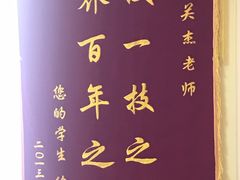 关杰老师
一技之
百年之
您的学生
二〇一三